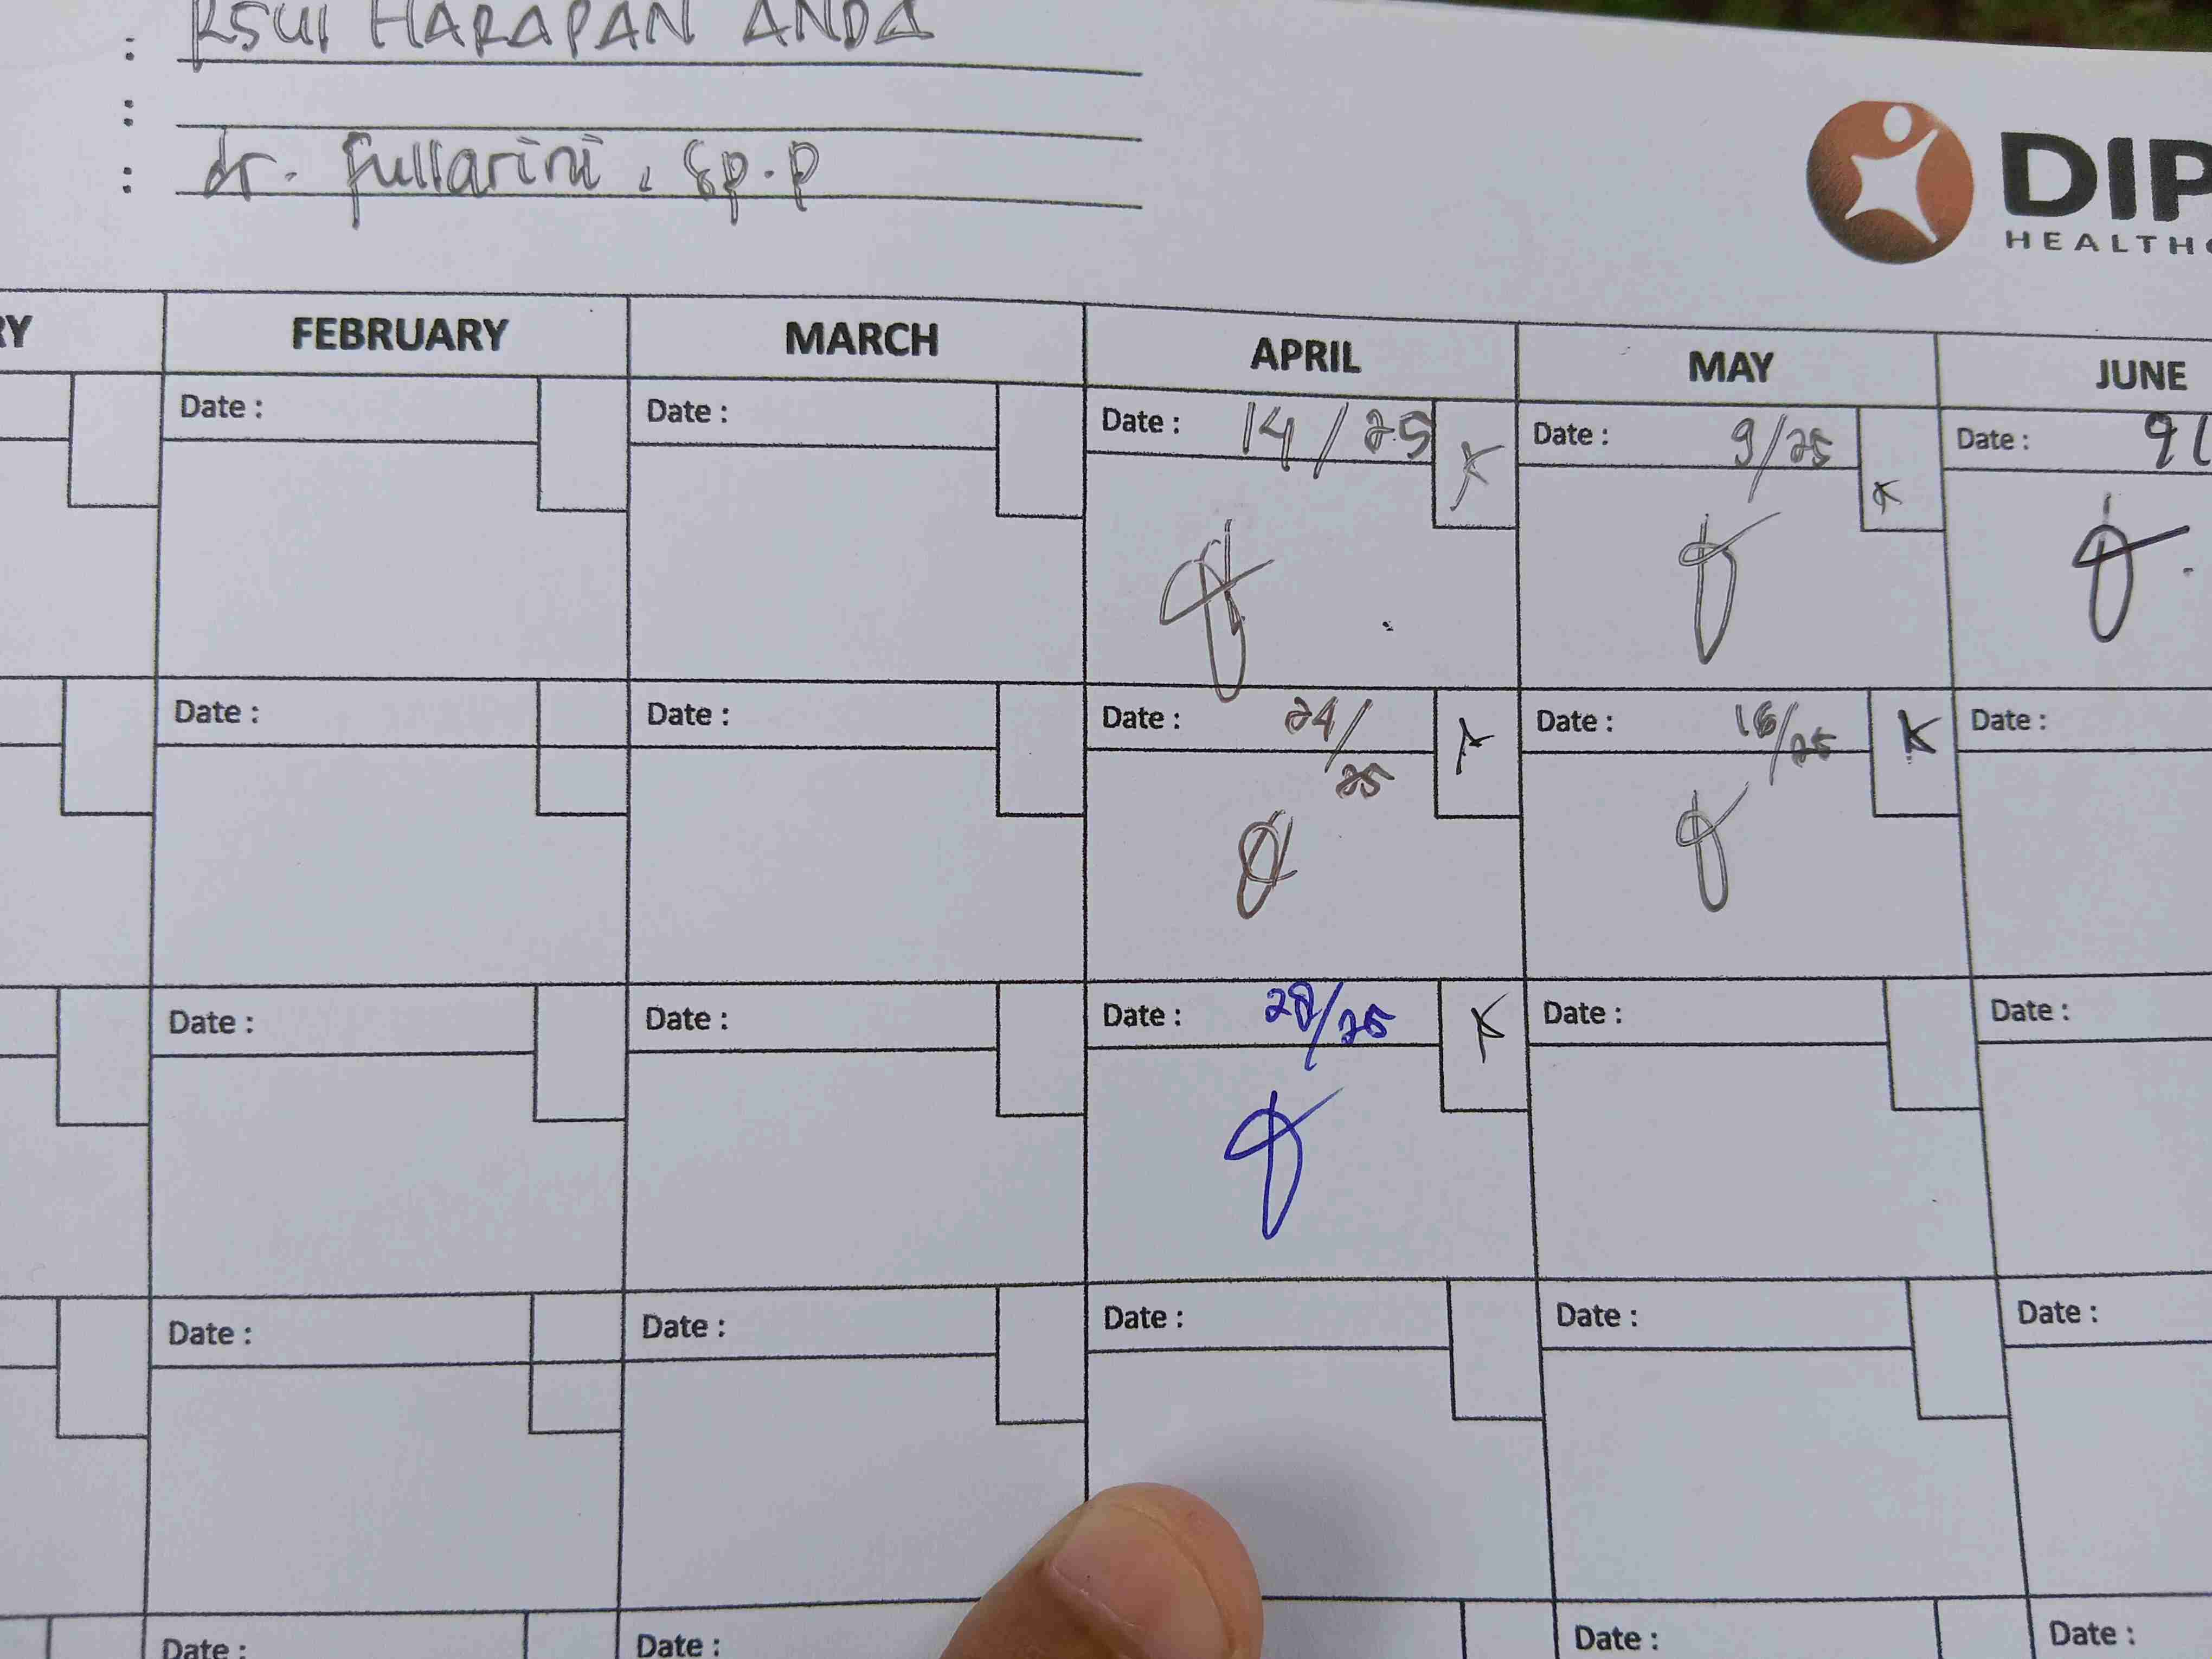 : RSUI HARAPAN ANDA
:
: dr. Fullarini, Sp.P
DIP
HEALTHC
RY FEBRUARY MARCH APRIL MAY JUNE
Date : Date : Date : 14/25 Date : 9/25 Date : 9(
Date : Date : Date : 24/25 Date : 16/25 Date :
Date : Date : Date : 28/25 Date : Date :
Date : Date : Date : Date : Date :
Date : Date : Date : Date :